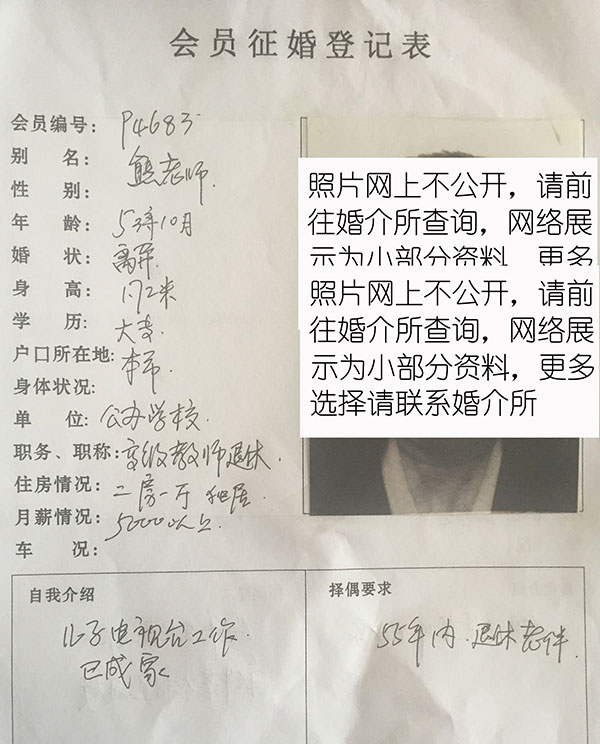 会员征婚登记表
会员编号： P4683
别 名： 熊老师.
性 别：
年 龄： 53年10月
婚 状： 离异.
身 高： 1.72米
学 历： 大专.
户口所在地： 本市.
身体状况：
单 位： 公办学校.
职务、职称： 高级教师退休.
住房情况： 二房一厅 和居.
月薪情况： 5000以上.
车 况：
照片网上不公开，请前
往婚介所查询，网络展
示为小部分资料，更多
照片网上不公开，请前
往婚介所查询，网络展
示为小部分资料，更多
选择请联系婚介所
自我介绍
儿子电视台工作.
已成家
择偶要求
55年内.退休老伴.